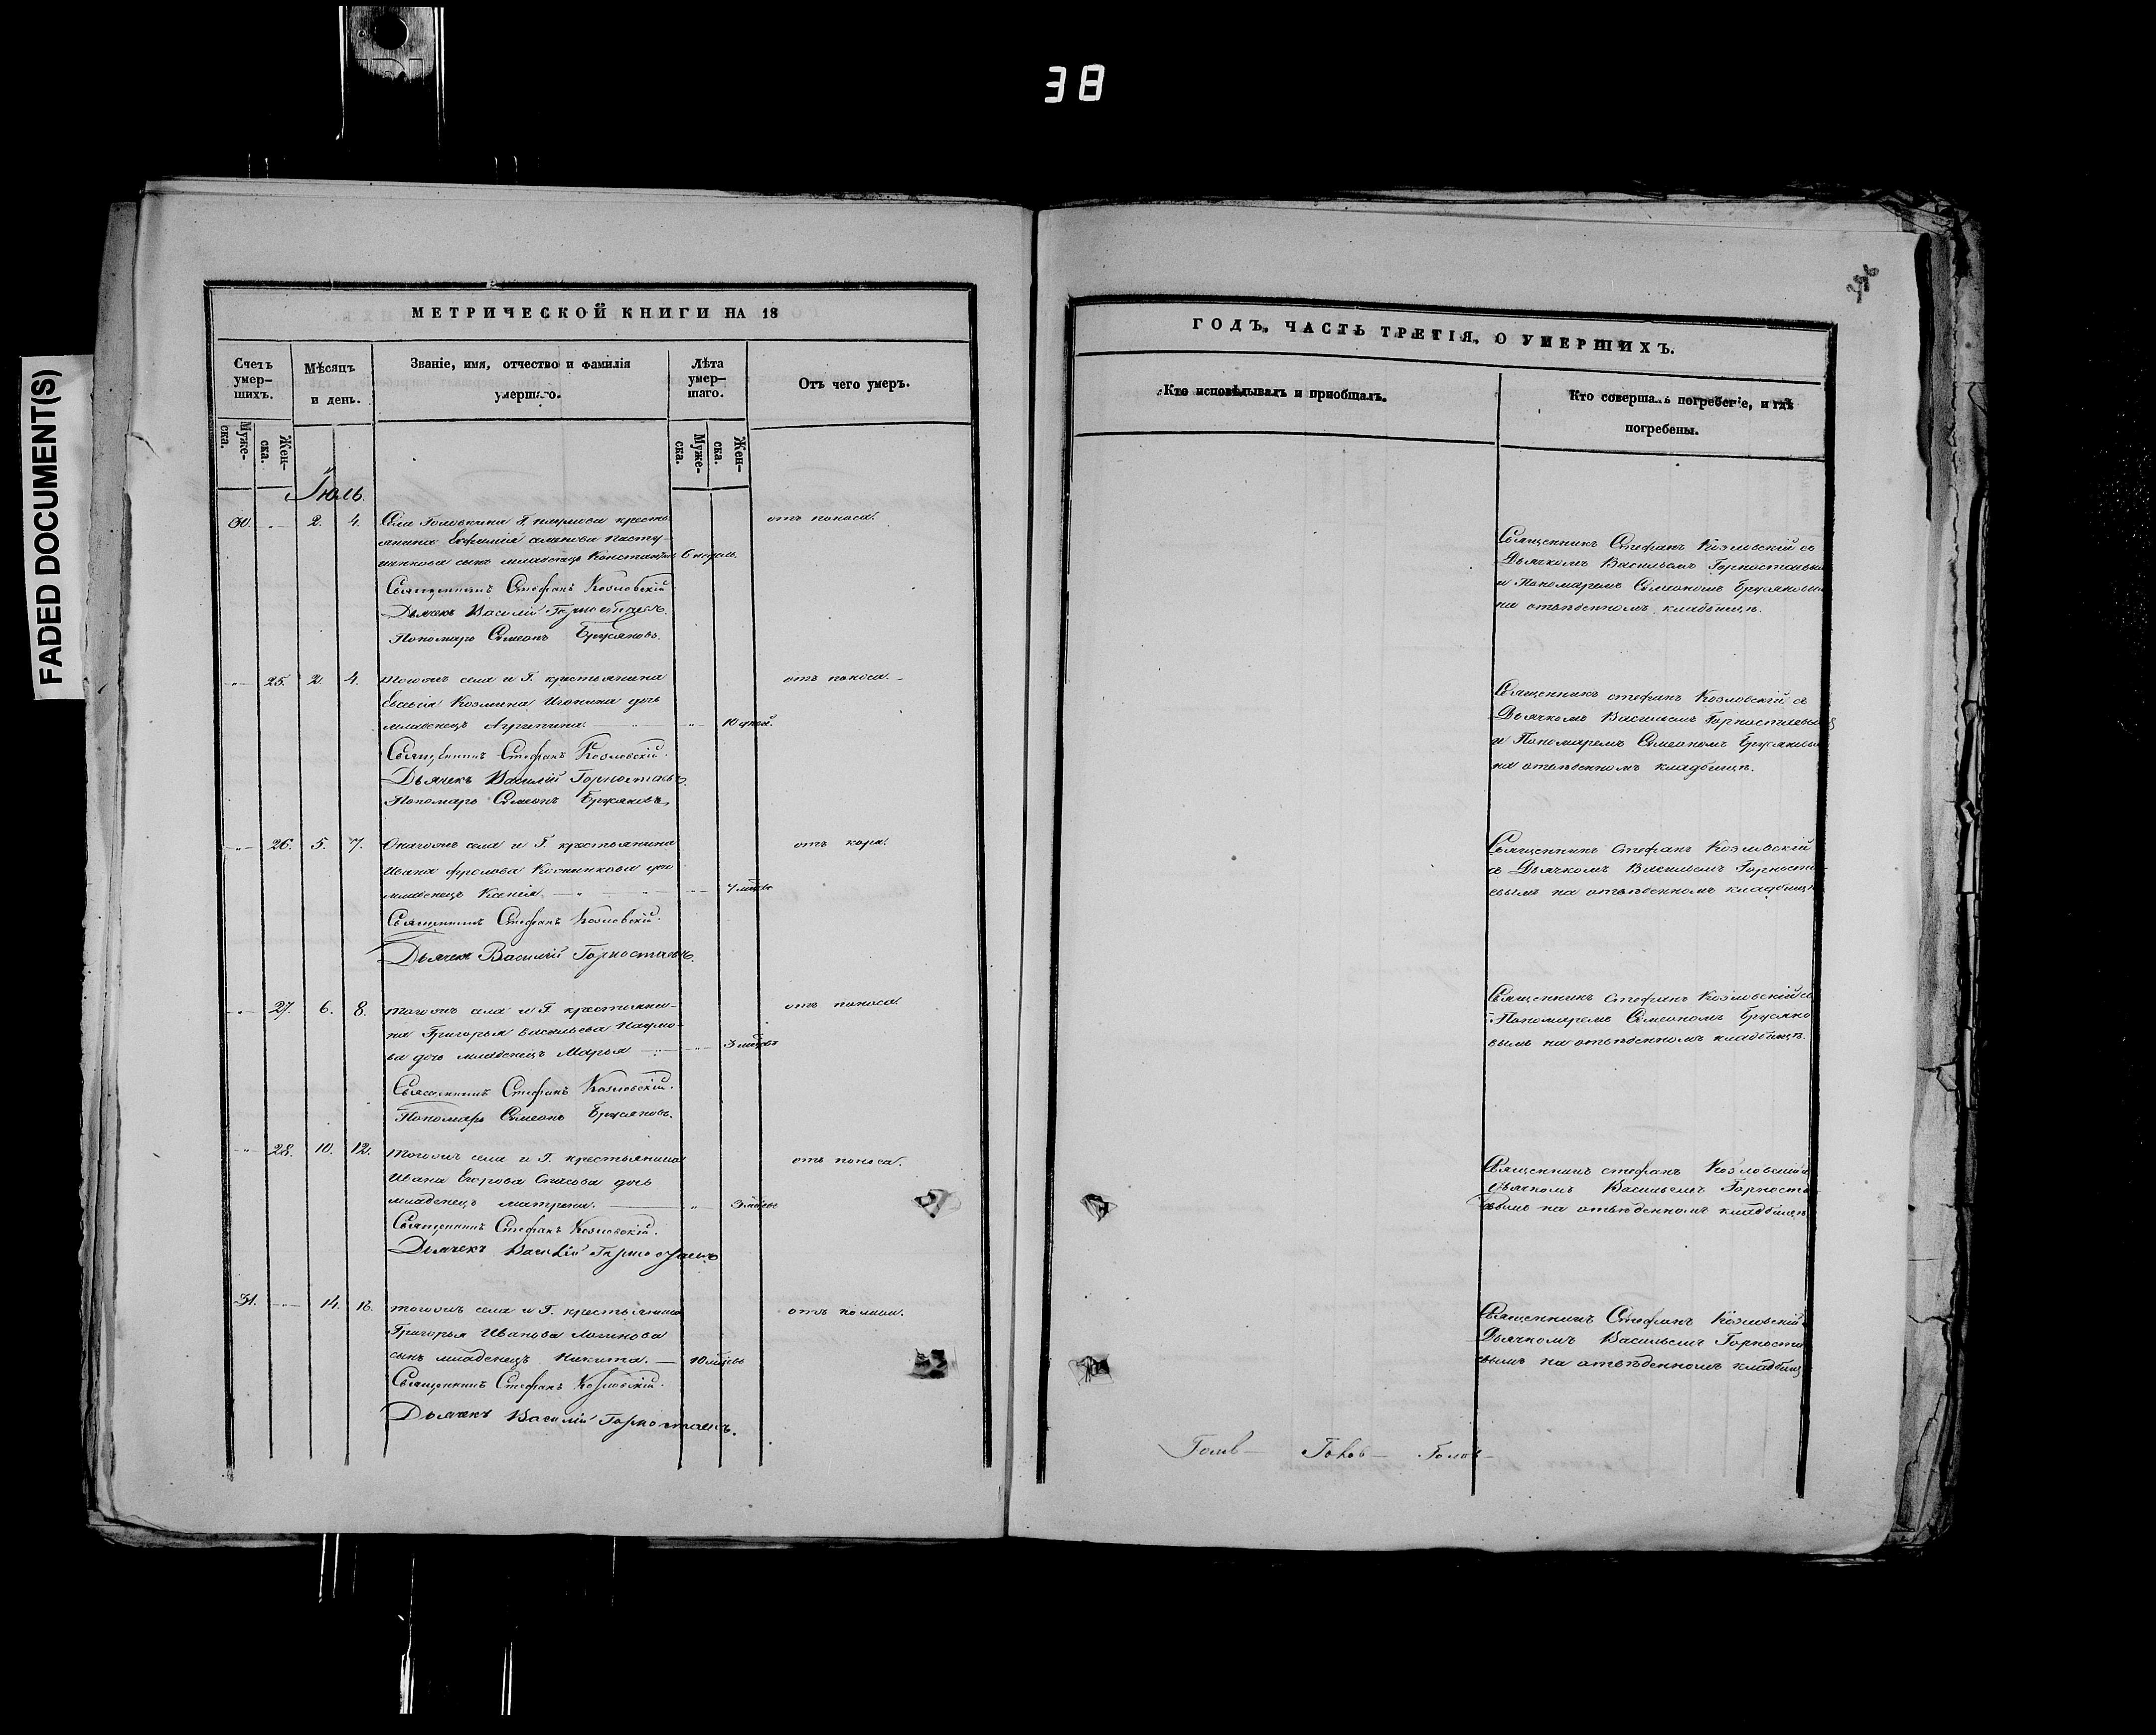 38
FADED DOCUMENT(S)
МЕТРИЧЕСКОЙ КНИГИ НА 18
Счетъ умер-шихъ.
Муже-ска.
Жен-ска.
Мѣсяцъ и день.
Званіе, имя, отчество и фамилія умершаго.
Лѣта умер-шаго.
Муже-ска.
Жен-ска.
Отъ чего умеръ.
Іюль.
30. 2. 4. Села Головкина Г. Наумова кресть-
отъ поноса.
янина Евфимія
сынъ младенецъ Константинъ 6 недѣль.
Священникъ Стефанъ Козловскій
Дьячекъ Василій Горностаевъ.
Пономарь Симеонъ Бружановъ.
25. 2. 4. Тогожъ села и Г. крестьянина
отъ поноса.
Козмина дочь
младенецъ Агрипина. 10 дней.
Священникъ Стефанъ Козловскій.
Дьячекъ Василій Горностаевъ.
Пономарь Симеонъ Бружановъ.
26. 5. 7. Онагожъ села и Г. крестьянина
отъ кори.
Ивана Фролова дочь
младенецъ Ксенія
Священникъ Стефанъ Козловскій.
Дьячекъ Василій Горностаевъ.
27. 6. 8. Тогожъ села и Г. крестьяни-
отъ поноса.
на Григорья Васильева Наумо-
ва дочь младенецъ Марья 3 мѣсяцъ
Священникъ Стефанъ Козловскій.
Пономарь Симеонъ Бружановъ.
28. 10. 12. Тогожъ села и Г. крестьянина
отъ поноса.
Ивана Егорова Спасова дочь
младенецъ Матрена. 3 мѣсяцъ
Священникъ Стефанъ Козловскій.
Дьячекъ Василій Горностаевъ
31. 14. 16. Тогожъ села и Г. крестьянина
отъ
Григорья Иванова Логинова
сынъ младенецъ Никита. 10 мѣсяцъ
Священникъ Стефанъ Козловскій.
Дьячекъ Василій Горностаевъ.
ГОДЪ, ЧАСТЬ ТРЕТІЯ, О УМЕРШИХЪ.
Кто исповѣдывалъ и пріобщалъ.
Кто совершалъ погребеніе, и гдѣ погребены.
Священникъ Стефанъ Козловскій съ
Дьячкомъ Васильемъ Горностаевы
и Пономаремъ Симеономъ Бружановы
на отвѣденномъ кладбищѣ.
Священникъ Стефанъ Козловскій съ
Дьячкомъ Васильемъ Горностаевы
и Пономаремъ Симеономъ Бружановы
на отвѣденномъ кладбищѣ.
Священникъ Стефанъ Козловскій
съ Дьячкомъ Васильемъ Горноста
евымъ на отвѣденномъ кладбищѣ
Священникъ Стефанъ Козловскій съ
Пономаремъ Симеономъ Бружано
вымъ на отвѣденномъ кладбищѣ.
Священникъ Стефанъ Козловскій с
Дьячкомъ Васильемъ Горноста
евымъ на отвѣденномъ кладбищѣ
Священникъ Стефанъ Козловскій
Дьячкомъ Васильемъ Горноста
евымъ на отвѣденномъ кладбищ